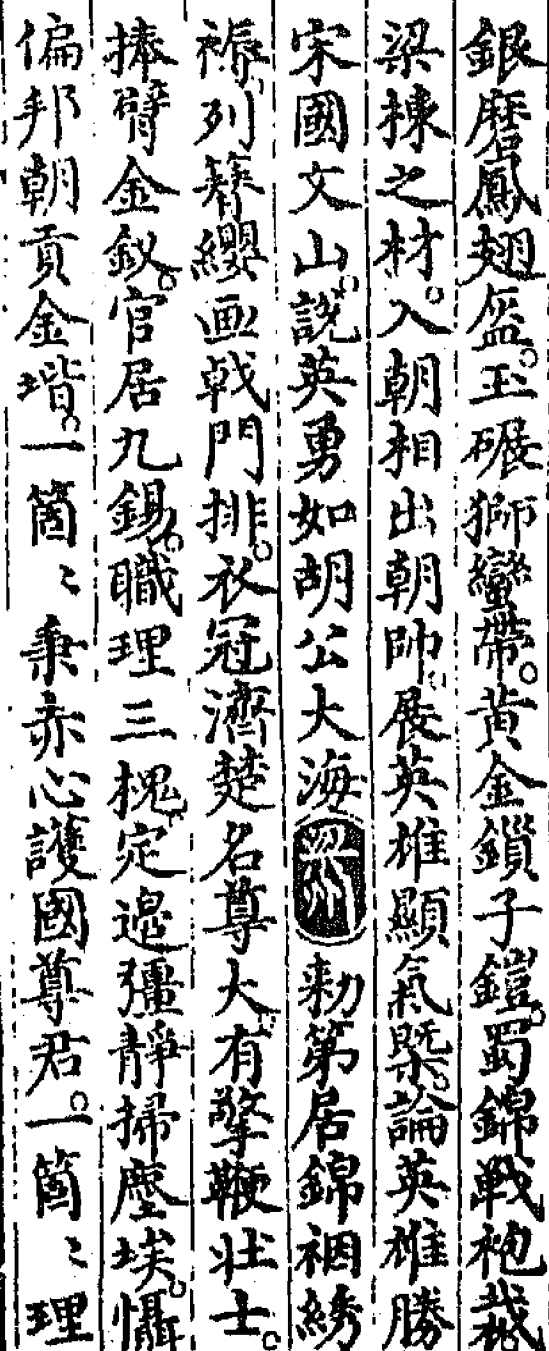 銀磨鳳翅盔。玉碾獅蠻帶。黃金鎖子鎧。蜀錦戰袍裁
梁揀之材。入朝相出朝帥。展英雄顯氣槩。論英雄勝
宋國文山。說英勇如胡公大海 勑第居錦裀綉
褥。列簪纓画戟門排。衣冠濟楚名尊大。有擎鞭壯士。
捧臂金釵。官居九錫。職理三槐。定邉彊靜掃塵埃。懾
偏邦朝貢金堦。一箇〻秉赤心護國尊君。一箇〻理